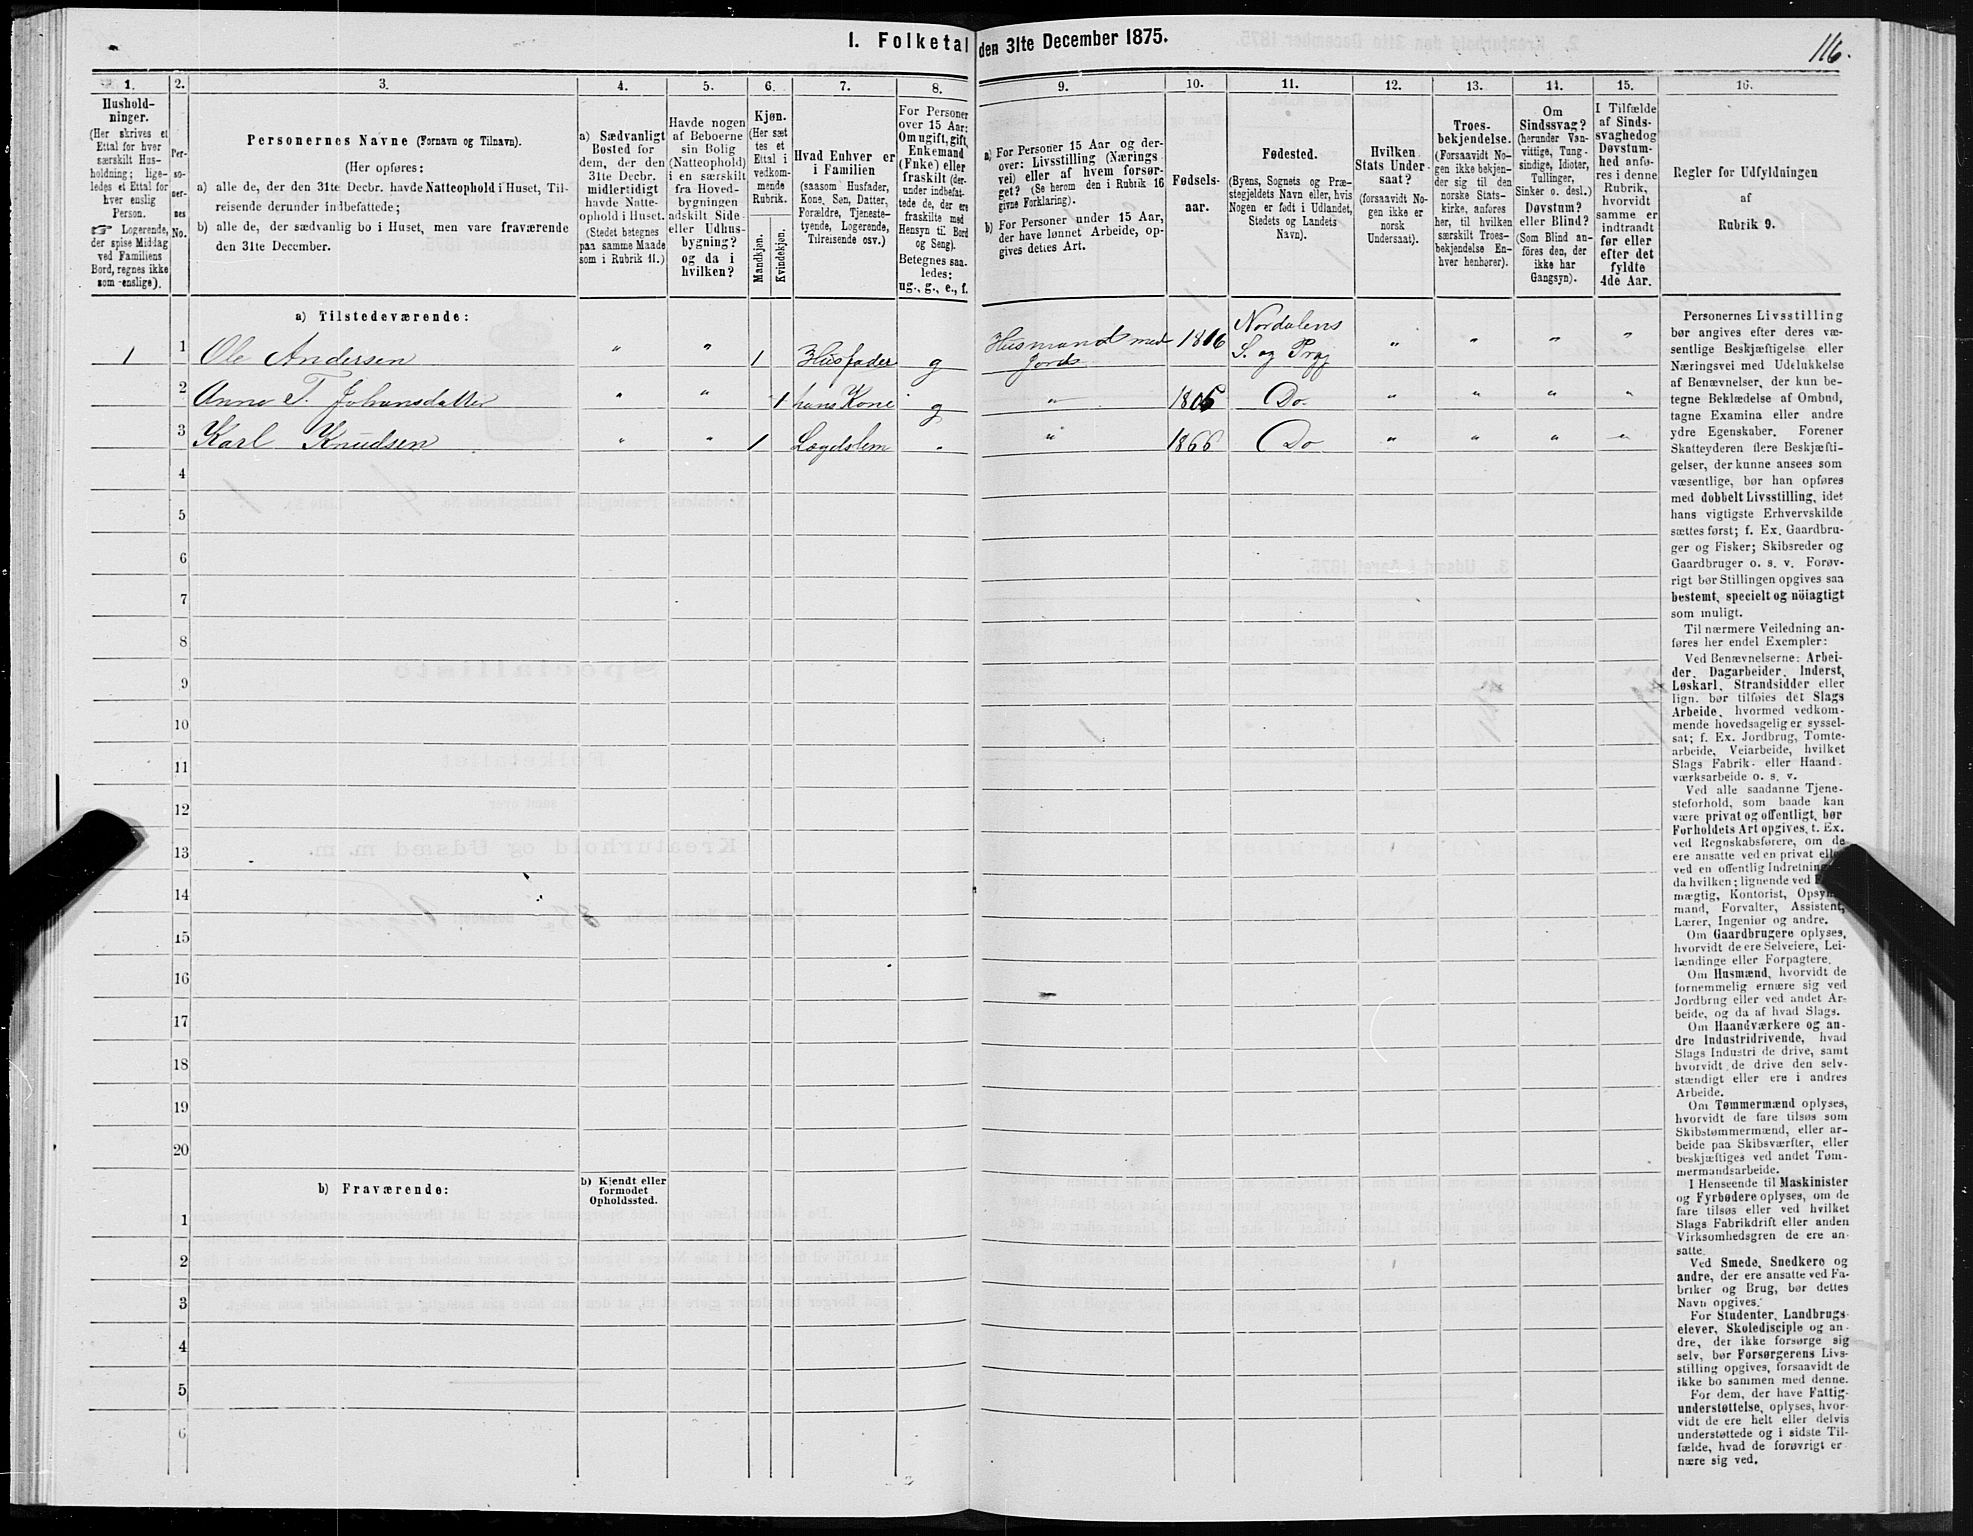 1. Folketal den 31te December 1875.
116.
1.
Hushold-
ninger.
(Her skrives et
Ettal for hver
særskilt Hus-
holdning; lige-
ledes et Ettal for
hver enslig
Person.
☞ Logerende,
der spise Middag
ved Familiens
Bord, regnes ikke
som enslige).
2.
Per-
so-
ner-
nes
No.
3.
Personernes Navne (Fornavn og Tilnavn).
(Her opføres:
a) alle de, der den 31te Decbr. havde Natteophold i Huset, Til-
reisende derunder indbefattede;
b) alle de, der sædvanlig bo i Huset, men vare fraværende
den 31te December.
4.
a) Sædvanligt
Bosted for
dem, der den
31te Decbr.
midlertidigt
havde Natte-
ophold i Huset.
(Stedet betegnes
paa samme Maade
som i Rubrik 11.)
5.
Havde nogen
af Beboerne
sin Bolig
(Natteophold)
i en særskilt
fra Hoved-
bygningen
adskilt Side-
eller Udhus-
bygning?
og da i
hvilken?
6.
Kjøn.
(Her sæt
tes et
Ettal i
vedkom-
mende
Rubrik.
Mandkjøn.
Kvindekjøn.
7.
Hvad Enhver er
i Familien
(saasom Husfader,
Kone, Søn, Datter,
Forældre, Tjeneste-
tyende, Logerende,
Tilreisende osv.)
8.
For Personer
over 15 Aar:
Om ugift, gift,
Enkemand
(Enke) eller
fraskilt (der-
under indbefat-
tede de, der ere
fraskilte med
Hensyn til Bord
og Seng).
Betegnes saa-
ledes:
ug., g., e., f.
9.
a) For Personer 15 Aar og der-
over: Livsstilling (Nærings
vei) eller af hvem forsør-
get? (Se herom den i Rubrik 16
givne Forklaring).
b) For Personer under 15 Aar,
der have lønnet Arbeide, op-
gives dettes Art.
10.
Fødsels-
aar.
11.
Fødested.
(Byens, Sognets og Præ-
stegjeldets Navn eller, hvis
Nogen er født i Udlandet,
Stedets og Landets
Navn).
12.
Hvilken
Stats Under-
saat?
(forsaavidt No-
gen ikke er
norsk
Undersaat).
13.
Troes-
bekjendelse.
(Forsaavidt No-
gen ikke bekjen-
der sig til den
norske Stats-
kirke, anføres
her, til hvilken
særskilt Troes-
bekjendelse En-
hver henhører).
14.
Om
Sindssvag?
(herunder Van-
vittige, Tung-
sindige, Idioter,
Tullinger,
Sinker o. desl.)
Døvstum?
eller Blind?
(Som Blind an-
føres den, der
ikke har
Gangsyn).
15.
I Tilfælde
af Sinds-
svaghed og
Døvstum-
hed anfø-
res i denne
Rubrik,
hvorvidt
samme er
indtraadt
før eller
efter det
fyldte
4de Aar.
16.
Regler for Udfyldningen
af
Rubrik 9.
a) Tilstedeværende:
1 1 Ole Andersen " " 1 Husfader g Husmand med Jord 1806 Nordalens S. og Prgj " " " "
2 Anne T. Johansdatter " " 1 hans Kone g " 1806 Do. " " " "
3 Karl Knudsen " " 1 Lægdslem " " 1866 Do " " " "
4
5
6
7
8
9
10
11
12
13
14
15
16
17
18
19
20
b) Fraværende:
b) Kjendt eller
formodet
Opholdssted.
1
2
3
4
5
6
Personernes Livsstilling
bør angives efter deres væ-
sentlige Beskjæftigelse eller
Næringsvei med Udelukkelse
af Benævnelser, der kun be-
tegne Beklædelse af Ombud,
tagne Examina eller andre
ydre Egenskaber. Forener
Skatteyderen flere Beskjæfti-
gelser, der kunne ansees som
væsentlige, bør han opføres
med dobbelt Livsstilling, idet
hans vigtigste Erhvervskilde
sættes først; f. Ex. Gaardbru-
ger og Fisker; Skibsreder og
Gaardbruger o. s. v. Forøv-
rigt bør Stillingen opgives saa
bestemt, specielt og nöiagtigt
som muligt.
Til nærmere Veiledning an-
føres her endel Exempler:
Ved Benævnelserne: Arbei-
der, Dagarbeider, Inderst,
Løskarl, Strandsidder eller
lign. bør tilføies det Slags
Arbeide, hvormed vedkom-
mende hovedsagelig er syssel-
sat; f. Ex. Jordbrug, Tomte-
arbeide, Veiarbeide, hvilket
Slags Fabrik- eller Haand-
værksarbeide o. s. v.
Ved alle saadanne Tjene-
steforhold, som baade kan
være privat og offentligt, bør
Forholdets Art opgives, t. Ex.
ved Regnskabsførere, om de
ere ansatte ved en privat eller
ved en offentlig Indretning,
da hvilken; lignende ved
mægtig, Kontorist, Opsyns-
mand, Forvalter, Assistent,
Lærer, Ingeniør og andre.
Om Gaardbrugere oplyses,
hvorvidt de ere Selveiere, Lei-
lændinge eller Forpagtere.
Om Husmænd, hvorvidt de
fornemmelig ernære sig ved
Jordbrug eller ved andet Ar-
beide, og da af hvad Slags.
Om Haandværkere og an-
dre Industridrivende, hvad
Slags Industri de drive, samt
hvorvidt de drive den selv-
stændigt eller ere i andres
Arbeide.
Om Tømmermænd oplyses,
hvorvidt de fare tilsøs som
Skibstømmermænd, eller ar-
beide paa Skibsværfter, eller
beskjæftiges ved andet Tøm-
mermandsarbeide.
I Henseende til Maskinister
og Fyrbødere oplyses, om de
fare tilsøs eller ved hvilket
Slags Fabrikdrift eller anden
Virksomhedsgren de ere an-
satte.
Ved Smede, Snedkere og
andre, der ere ansatte ved Fa-
briker og Brug, bør dettes
Navn opgives.
For Studenter, Landbrugs-
elever, Skoledisciple og an-
dre, der ikke forsørge sig
selv, bør Forsørgerens Livs-
stilling opgives, forsaavidt de
ikke bo sammen med denne.
For dem, der have Fattig-
understøttelse, oplyses, hvor-
vidt de ere helt eller delvis
understøttede og i sidste Til-
fælde, hvad de forøvrigt er-
nære sig ved.